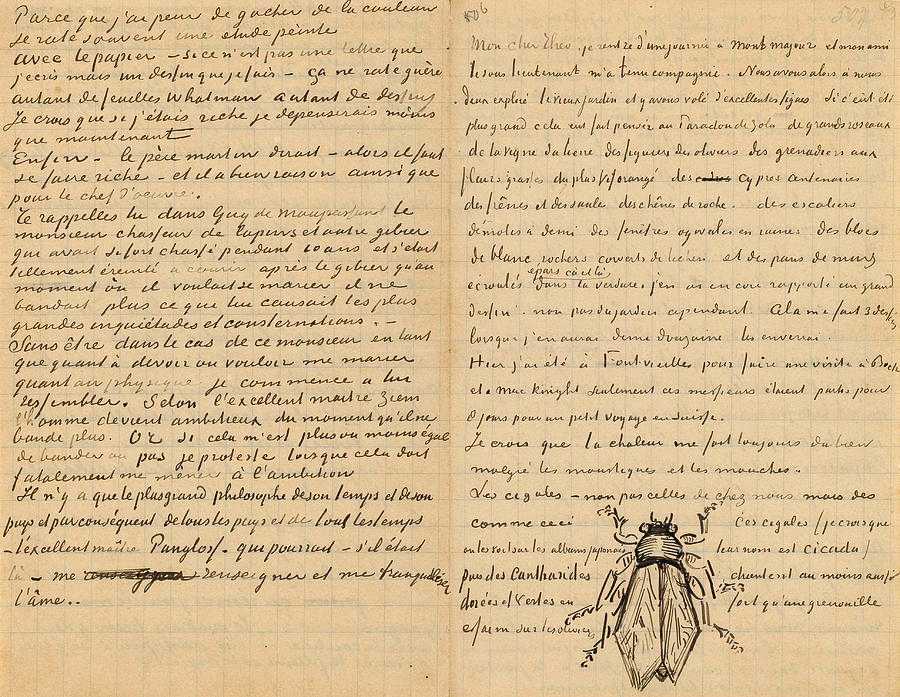 Parce que j'ai peur de gacher de la couleur
je rate souvent une étude peinte
avec le papier – si ce n'est pas une lettre que
j'ecris mais un dessin que je fais – ça ne rate guère
autant de feuilles Whatman autant de dessins
Je crois que si j'étais riche je depenserais moins
que maintenant
Enfin – le père martin dirait – alors il faut
se faire riche – et il a bien raison ainsi que
pour le chef d'oeuvre.
Te rappelles tu dans Guy de Maupassant le
monsieur chasseur de lapins et autre gibier
qui avait si fort chassé pendant 10 ans et s'était
tellement éreinté a courir après le gibier qu'au
moment où il voulait se marier il ne
bandait plus ce qui lui causait les plus
grandes inquiétudes et consternations. –
Sans être dans le cas de ce monsieur en tant
que quant à devoir ou vouloir me marier
quant au physique je commence a lui
ressembler. Selon l'excellent maitre Ziem
l'homme devient ambitieux du moment qu'il ne
bande plus. Or si cela m'est plus ou moins égal
de bander ou pas je proteste lorsque cela doit
fatalement me mener à l'ambition
Il n'y a que le plus grand philosophe de son temps et de son
pays et par conséquent de tous les pays et de tout les temps
– l'excellent maître Pangloss – qui pourrait – s'il était
là – me renseigner et me tranquilliser
l'âme..
506
Mon cher Theo, je rentre d'une journée à Mont majour et mon ami
le sous lieutenant m'a tenu compagnie. Nous avons alors à nous
deux exploré le vieux jardin et y avons volé d'excellentes figues. Si c'eut été
plus grand cela eut fait penser au Paradou de Zola de grands roseaux
de la vigne du lierre des figuiers des oliviers des grenadiers aux
fleurs grasses du plus vif orangé des cypres centenaires
des frênes et des saules des chênes de roche. des escaliers
démolis à demi des fenêtres ogivales en ruines des blocs
de blanc rochers couverts de lichen et des pans de murs
ecroulés epars cà et là dans la verdure. j'en ai encore rapporté un grand
dessin. non pas du jardin cependant. Cela me fait 3 dessins
lorsque j'en aurai demie douzaine les enverrai.
Hier j'ai été à Fontvieilles pour faire une visite à Bock
et a Mac Knight seulement ces messieurs étaient partis pour
8 jours pour un petit voyage en Suisse.
Je crois que la chaleur me fait toujours du bien
malgré les moustiques et les mouches.
Les cigales – non pas celles de chez nous mais des
comme ceci Ces cigales /je crois que
on les voit sur les albums japonais leur nom est cicada/
puis des Cantharides chantent au moins aussi
dorées et vertes en fort qu'une grenouille
essaim sur les oliviers